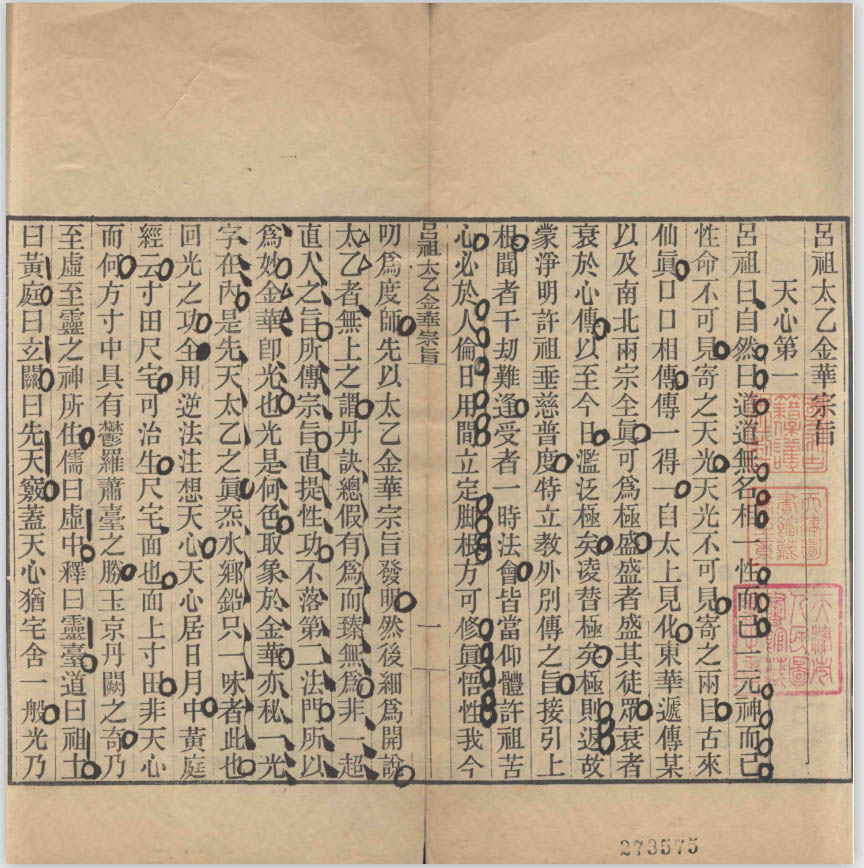 呂祖太乙金華宗旨
天心第一
呂祖曰自然曰道道無名相一性而已一元神而已
性命不可見寄之天光天光不可見寄之兩目古來
仙眞口口相傳傳一得一自太上見化東華遞傳某
以及南北兩宗全眞可爲極盛盛者盛其徒眾衰者
衰於心傳以至今日濫泛極矣凌替極矣極則返故
蒙淨明許祖垂慈普度特立教外别傳之旨接引上
根聞者千刼難逢受者一時法會皆當仰體許祖苦
心必於人倫日用間立定脚根方可修眞悟性我今
呂祖太乙金華宗旨
一
叨爲度師先以太乙金華宗旨發明然後細爲開說
太乙者無上之謂丹訣總假有爲而臻無爲非一超
直入之旨所傳宗旨直提性功不落第二法門所以
爲妙金華卽光也光是何色取象於金華亦秘一光
字在內是先天太乙之眞炁水鄉鉛只一味者此也
回光之功全用逆法注想天心天心居日月中黃庭
經云寸田尺宅可治生尺宅面也面上寸田非天心
而何方寸中具有鬱羅蕭臺之勝玉京丹闕之奇乃
至虛至靈之神所住儒曰虛中釋曰靈臺道曰祖土
曰黃庭曰玄關曰先天竅蓋天心猶宅舍一般光乃
273575